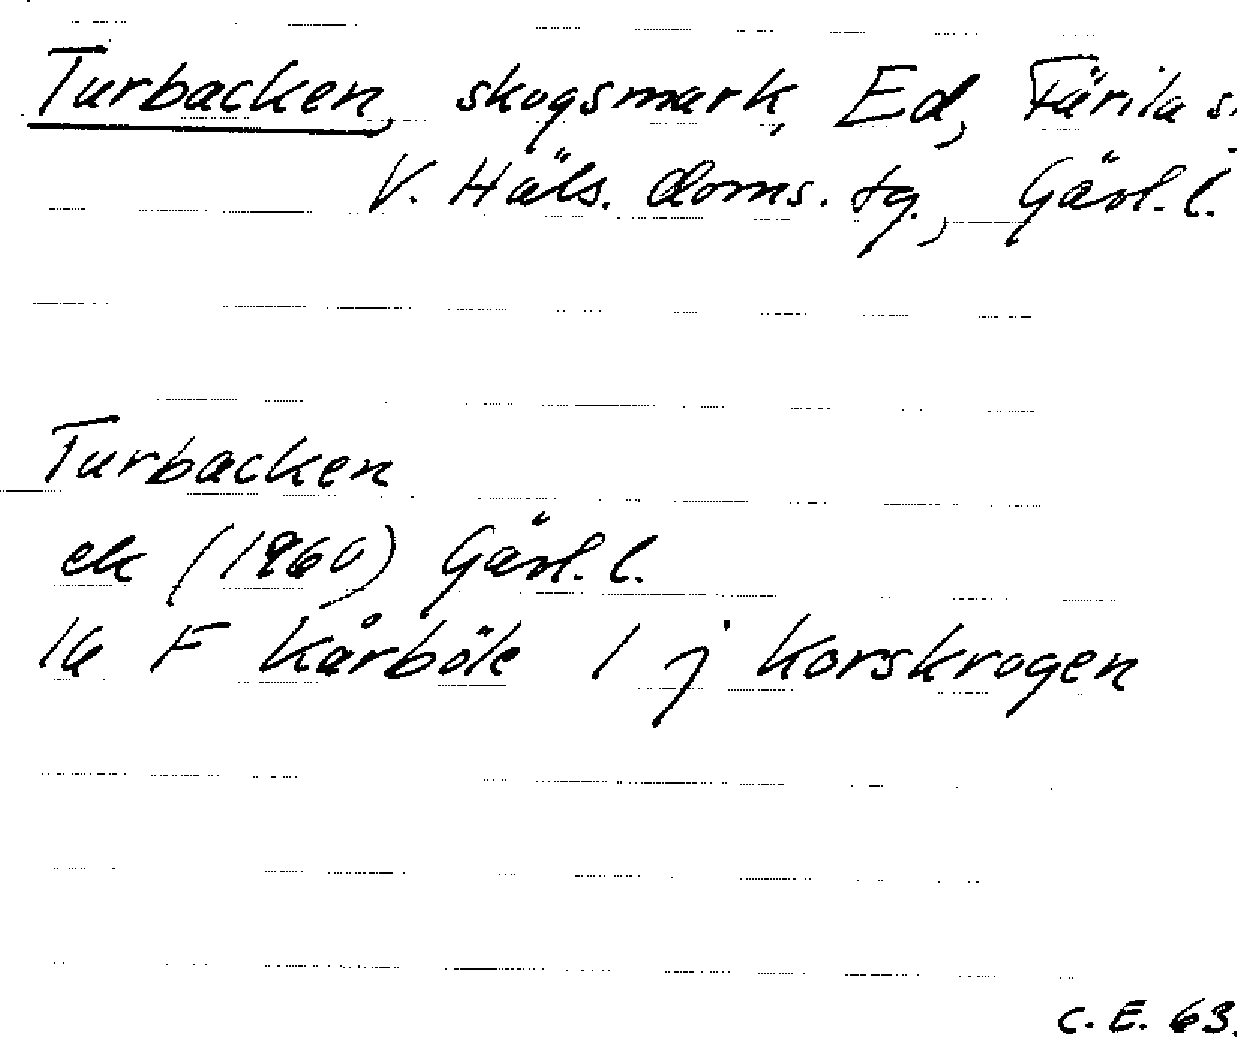 Turbacken, skogsmark, Ed, Färila s.
V. Häls. doms. tg., Gävl. l.
Turbacken
ek (1960) Gävl. l.
16 F Kårböle 1 j Korskrogen
C. E. 63.